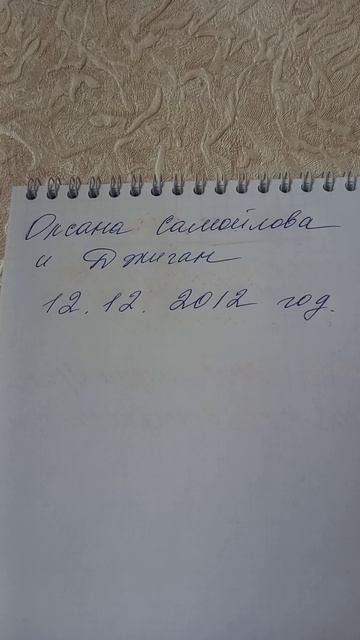 Оксана Самойлова
и Джиган
12.12.2012 год.